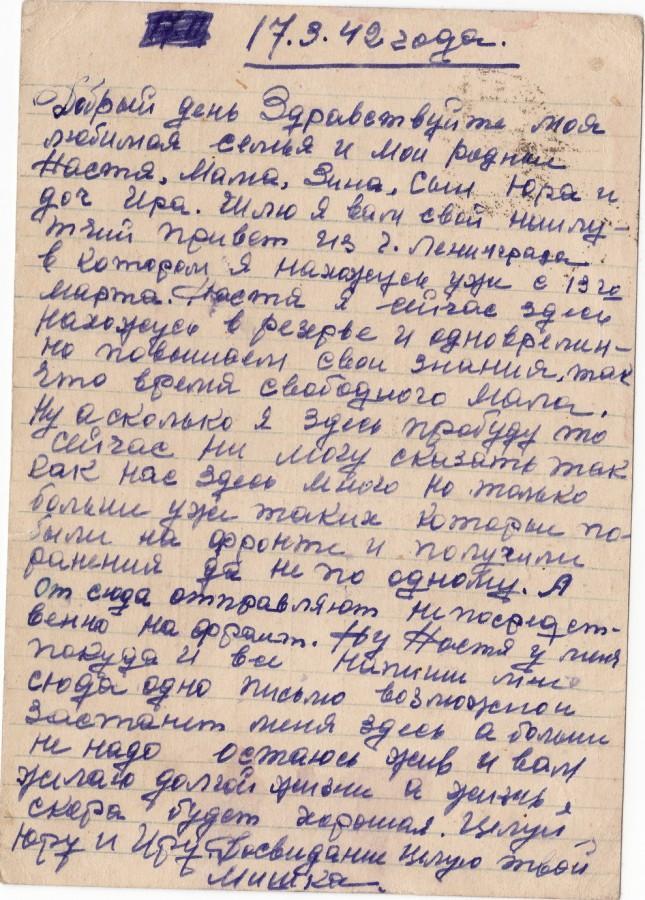 17.3.42 года.
Добрый день Здравствуйте моя
любимая семья и мои родные
Настя, Мама, Зина, Сын Юра и
доч Ира. Шлю я вам свой наилу-
тчий привет из г. Ленинграда
в котором я нахожусь уже с 13го
марта. Настя я сейчас здесь
нахожусь в резерве и одновремен-
но повышаем свои знания, так
что время свободного мала.
Ну а сколько я здесь пробуду то
сейчас ни могу сказать так
как нас здесь много но только
больши уже таких которыи по-
были на фронте и получили
ранения да не по одному. А
от сюда отправляют непосредст-
венно на фронт. Ну Настя у меня
покуда и все напиши мне
сюда одно письмо возможно
застанит меня здесь а больши
не надо остаюсь жив и вам
жилаю долгой жизни а жизнь
скора будет хорошая. Целуй
Юру и Иру Досвидание целую твой
Мишка.